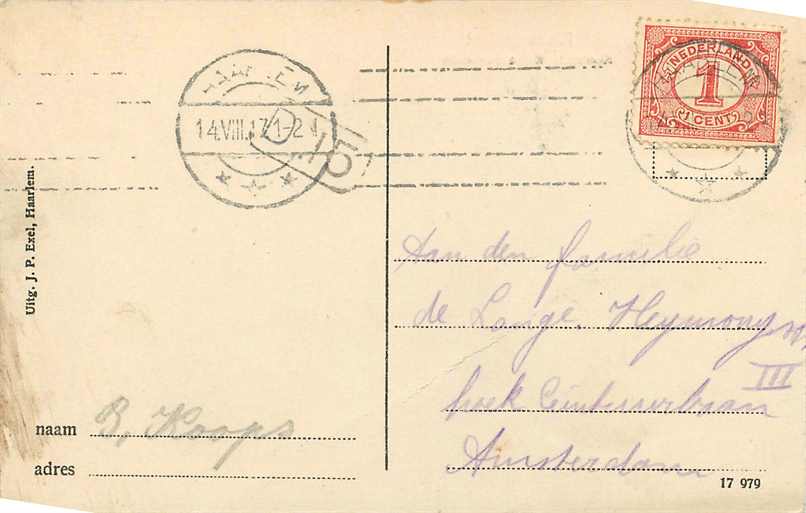 HAARLEM
14.VIII.17 1-2 N
D 15
NEDERLAND
1
1 CENT
HAARLEM
Uitg. J. P. Exel, Haarlem.
Aan den familie
de Lange. Heymong
III
hoek Ceintuurbaan
Amsterdam
naam B. Koops
adres
17 979